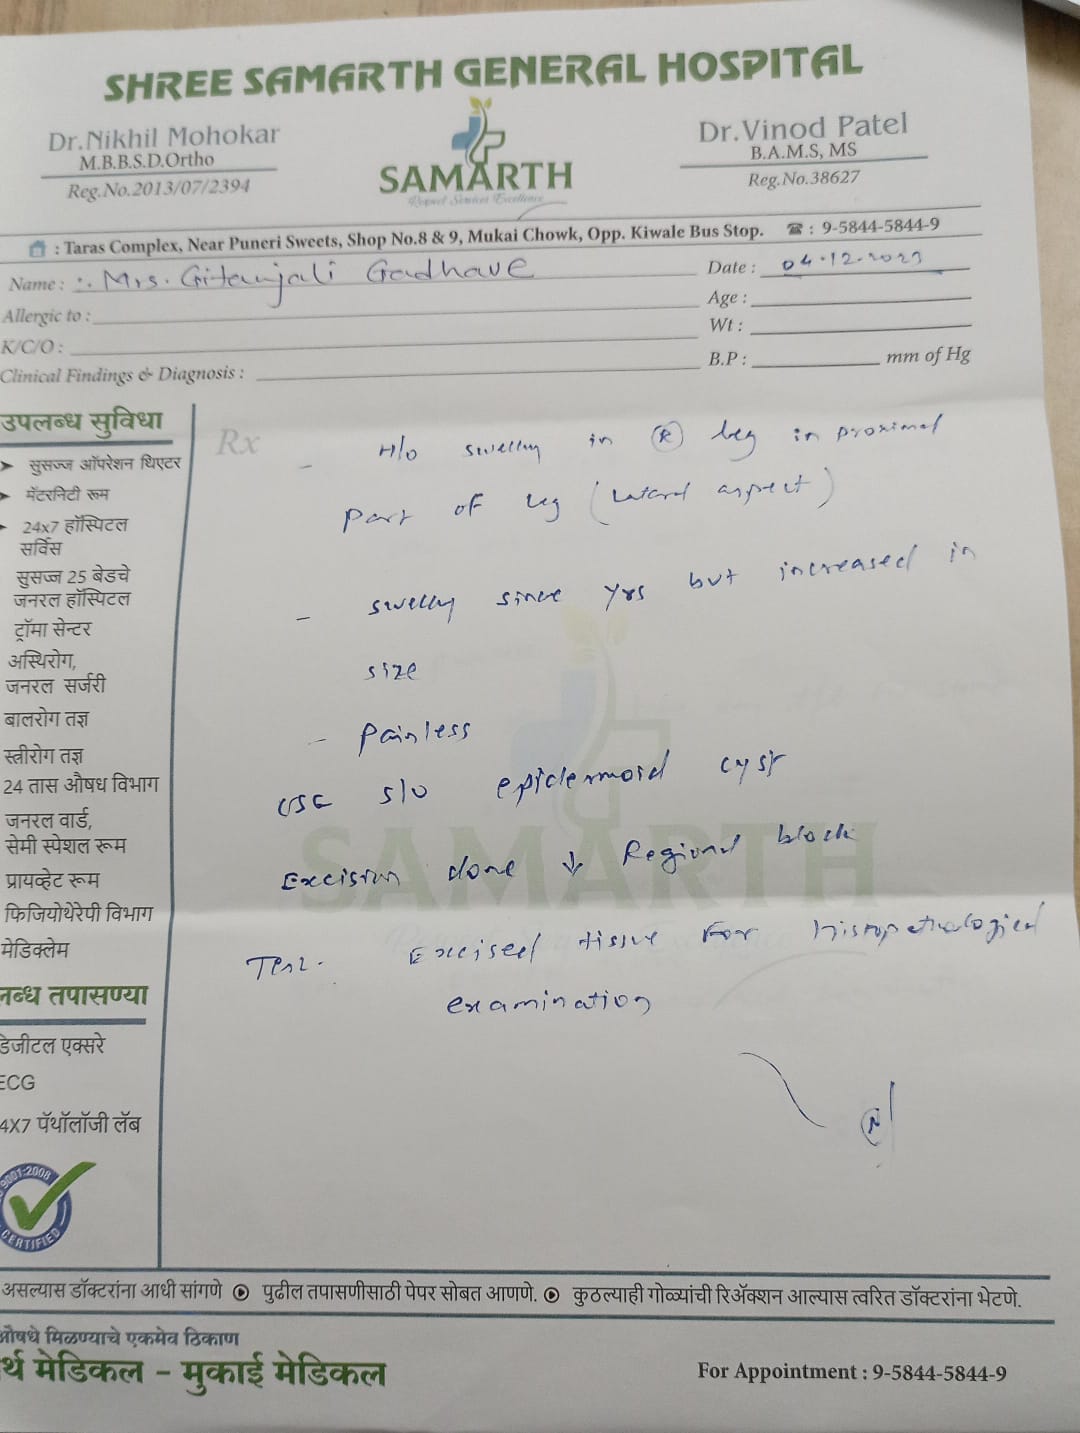 SHREE SAMARTH GENERAL HOSPITAL
Dr.Nikhil Mohokar
M.B.B.S.D.Ortho
Reg.No.2013/07/2394
SAMARTH
Respect Services Excellence
Dr.Vinod Patel
B.A.M.S, MS
Reg.No.38627
: Taras Complex, Near Puneri Sweets, Shop No.8 & 9, Mukai Chowk, Opp. Kiwale Bus Stop. ☎ : 9-5844-5844-9
Name : Mrs. Gitanjali Gadhave
Date : 04.12.2023
Allergic to :
Age :
Wt :
K/C/O :
B.P : mm of Hg
Clinical Findings & Diagnosis :
उपलब्ध सुविधा
➤ सुसज्ज ऑपरेशन थिएटर
➤ मॅटरनिटी रूम
24x7 हॉस्पिटल
सर्विस
सुसज्ज 25 बेडचे
जनरल हॉस्पिटल
ट्रॉमा सेन्टर
अस्थिरोग,
जनरल सर्जरी
बालरोग तज्ञ
स्त्रीरोग तज्ञ
24 तास औषध विभाग
जनरल वार्ड,
सेमी स्पेशल रूम
प्रायव्हेट रूम
फिजियोथेरेपी विभाग
मेडिक्लेम
लब्ध तपासण्या
डिजीटल एक्सरे
ECG
4X7 पॅथॉलॉजी लॅब
9001:2008
CERTIFIED
Rx
- H/o swelling in (R) leg in proximal
part of leg (lateral aspect)
- swelling since yrs but increased in
size
- painless
USG s/o epidermoid cyst
Excision done ↓ Regional block
Excised tissue for histopathological
examination
SAMARTH
असल्यास डॉक्टरांना आधी सांगणे ⦿ पुढील तपासणीसाठी पेपर सोबत आणणे. ⦿ कुठल्याही गोळ्यांची रिॲक्शन आल्यास त्वरित डॉक्टरांना भेटणे.
औषधे मिळण्याचे एकमेव ठिकाण
र्थ मेडिकल - मुकाई मेडिकल
For Appointment : 9-5844-5844-9